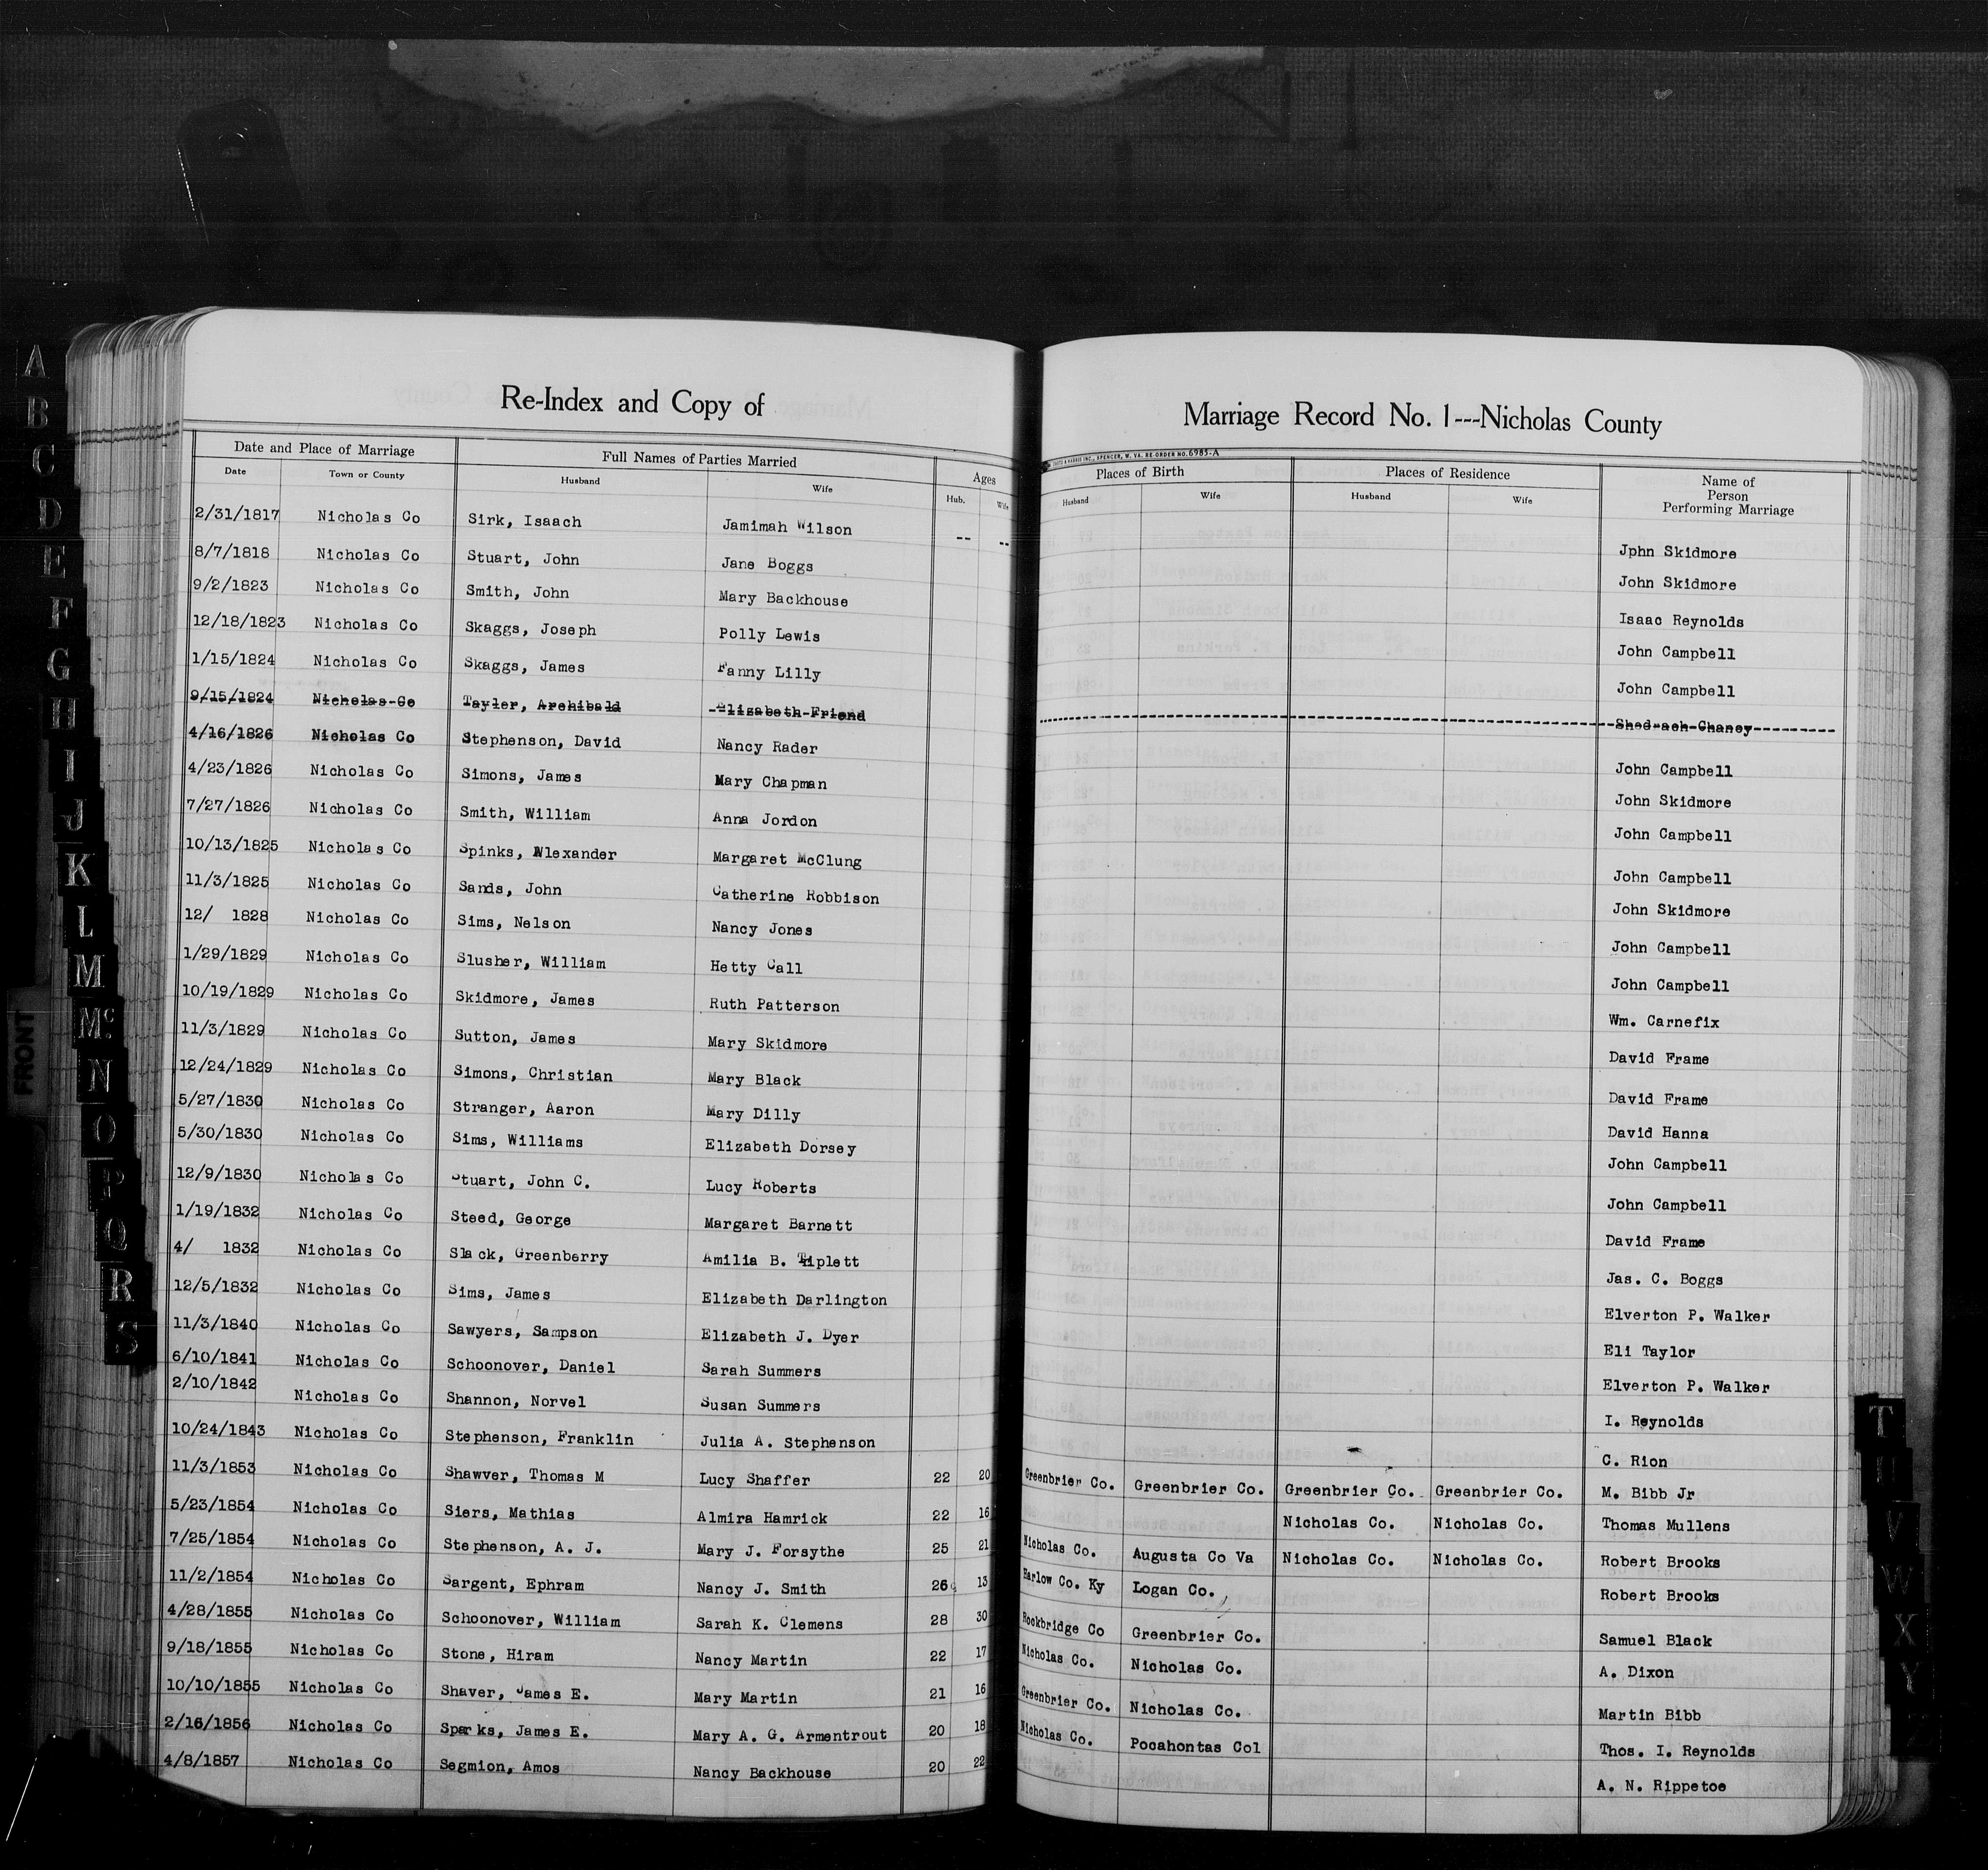 Re-Index and Copy of Marriage Record No. 1---Nicholas County
Date and Place of Marriage Full Names of Parties Married Ages Places of Birth Places of Residence Name of Person Performing Marriage
Date Town or County Husband Wife Hub. Wife Husband Wife Husband Wife
2/31/1817 Nicholas Co Sirk, Isaach Jamimah Wilson -- -- Jphn Skidmore
8/7/1818 Nicholas Co Stuart, John Jane Boggs John Skidmore
9/2/1823 Nicholas Co Smith, John Mary Backhouse Isaac Reynolds
12/18/1823 Nicholas Co Skaggs, Joseph Polly Lewis John Campbell
1/15/1824 Nicholas Co Skaggs, James Fanny Lilly John Campbell
9/15/1824 Nicholas Co Tayler, Archibald Elizabeth Friend Shed-ach Chaney
4/16/1826 Nicholas Co Stephenson, David Nancy Rader John Campbell
4/23/1826 Nicholas Co Simons, James Mary Chapman John Skidmore
7/27/1826 Nicholas Co Smith, William Anna Jordon John Campbell
10/13/1825 Nicholas Co Spinks, Alexander Margaret McClung John Campbell
11/3/1825 Nicholas Co Sands, John Catherine Robbison John Skidmore
12/ 1828 Nicholas Co Sims, Nelson Nancy Jones John Campbell
1/29/1829 Nicholas Co Slusher, William Hetty Call John Campbell
10/19/1829 Nicholas Co Skidmore, James Ruth Patterson Wm. Carnefix
11/3/1829 Nicholas Co Sutton, James Mary Skidmore David Frame
12/24/1829 Nicholas Co Simons, Christian Mary Black David Frame
5/27/1830 Nicholas Co Stranger, Aaron Mary Dilly David Hanna
5/30/1830 Nicholas Co Sims, Williams Elizabeth Dorsey John Campbell
12/9/1830 Nicholas Co Stuart, John C. Lucy Roberts John Campbell
1/19/1832 Nicholas Co Steed, George Margaret Barnett David Frame
4/ 1832 Nicholas Co Slack, Greenberry Amilia B. Tiplett Jas. C. Boggs
12/5/1832 Nicholas Co Sims, James Elizabeth Darlington Elverton P. Walker
11/3/1840 Nicholas Co Sawyers, Sampson Elizabeth J. Dyer Eli Taylor
6/10/1841 Nicholas Co Schoonover, Daniel Sarah Summers Elverton P. Walker
2/10/1842 Nicholas Co Shannon, Norvel Susan Summers I. Reynolds
10/24/1843 Nicholas Co Stephenson, Franklin Julia A. Stephenson C. Rion
11/3/1853 Nicholas Co Shawver, Thomas M Lucy Shaffer 22 20 Greenbrier Co. Greenbrier Co. Greenbrier Co. Greenbrier Co. M. Bibb Jr
5/23/1854 Nicholas Co Siers, Mathias Almira Hamrick 22 16 Nicholas Co. Nicholas Co. Thomas Mullens
7/25/1854 Nicholas Co Stephenson, A. J. Mary J. Forsythe 25 21 Nicholas Co. Augusta Co Va Nicholas Co. Nicholas Co. Robert Brooks
11/2/1854 Nicholas Co Sargent, Ephram Nancy J. Smith 26 13 Harlow Co. Ky Logan Co. Robert Brooks
4/28/1855 Nicholas Co Schoonover, William Sarah K. Clemens 28 30 Rockbridge Co Greenbrier Co. Samuel Black
9/18/1855 Nicholas Co Stone, Hiram Nancy Martin 22 17 Nicholas Co. Nicholas Co. A. Dixon
10/10/1855 Nicholas Co Shaver, James E. Mary Martin 21 16 Greenbrier Co. Nicholas Co. Martin Bibb
2/16/1856 Nicholas Co Sparks, James E. Mary A. G. Armentrout 20 18 Nicholas Co. Pocahontas Col Thos. I. Reynolds
4/8/1857 Nicholas Co Segmion, Amos Nancy Backhouse 20 22 A. N. Rippetoe
A
B
C
D
E
F
G
H
I
J
K
L
M
Mc
N
O
P
Q
R
S
FRONT
T
U
V
W
X
Y
Z